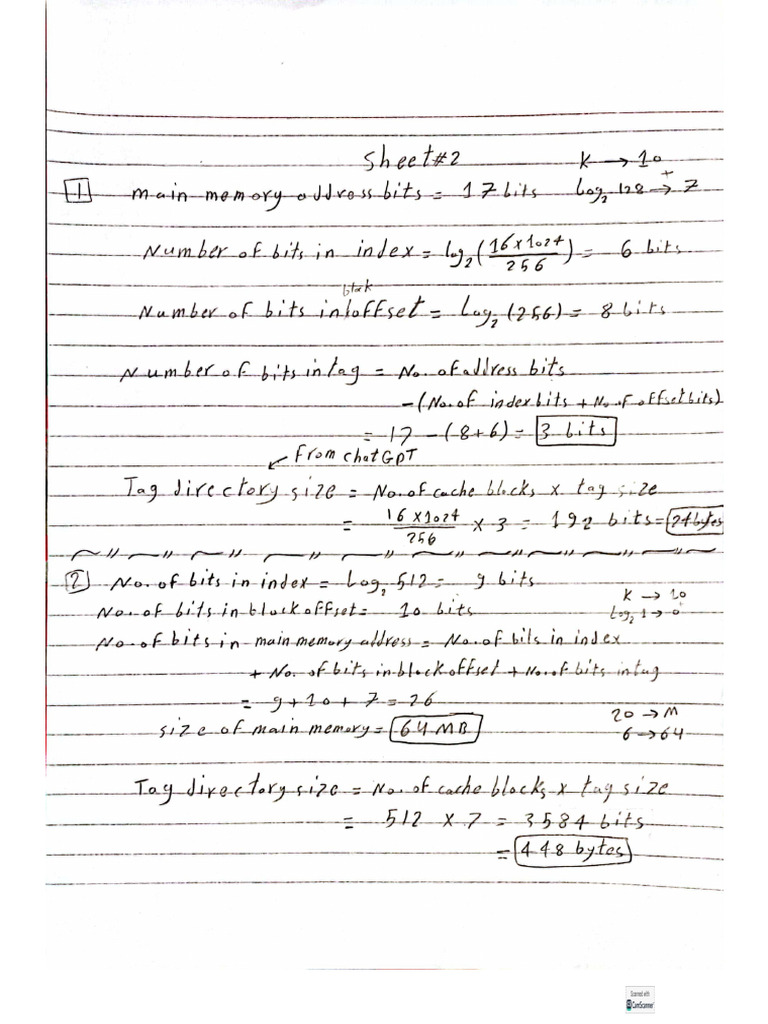 Sheet#2
K → 10
+
[1] main memory address bits = 17 bits
Log₂ 128 → 7
Number of bits in index = log₂(16×1024/256) = 6 bits
block
Number of bits in offset = Log₂(256) = 8 bits
Number of bits in tag = No. of address bits
-(No. of index bits + No. of offset bits)
= 17 - (8+6) = 3 bits
From chatGPT
Tag directory size = No. of cache blocks x tag size
= 16×1024/256 x 3 = 192 bits = 24 bytes
[2] No. of bits in index = Log₂ 512 = 9 bits
K → 10
+
No. of bits in block offset = 10 bits
Log₂ 1 → 0
No. of bits in main memory address = No. of bits in index
+ No. of bits in block offset + No. of bits in tag
= 9 + 10 + 7 = 26
20 → M
size of main memory = 64 MB
6 → 64
Tag directory size = No. of cache blocks x tag size
= 512 x 7 = 3584 bits
= 448 bytes
Scanned with
CamScanner